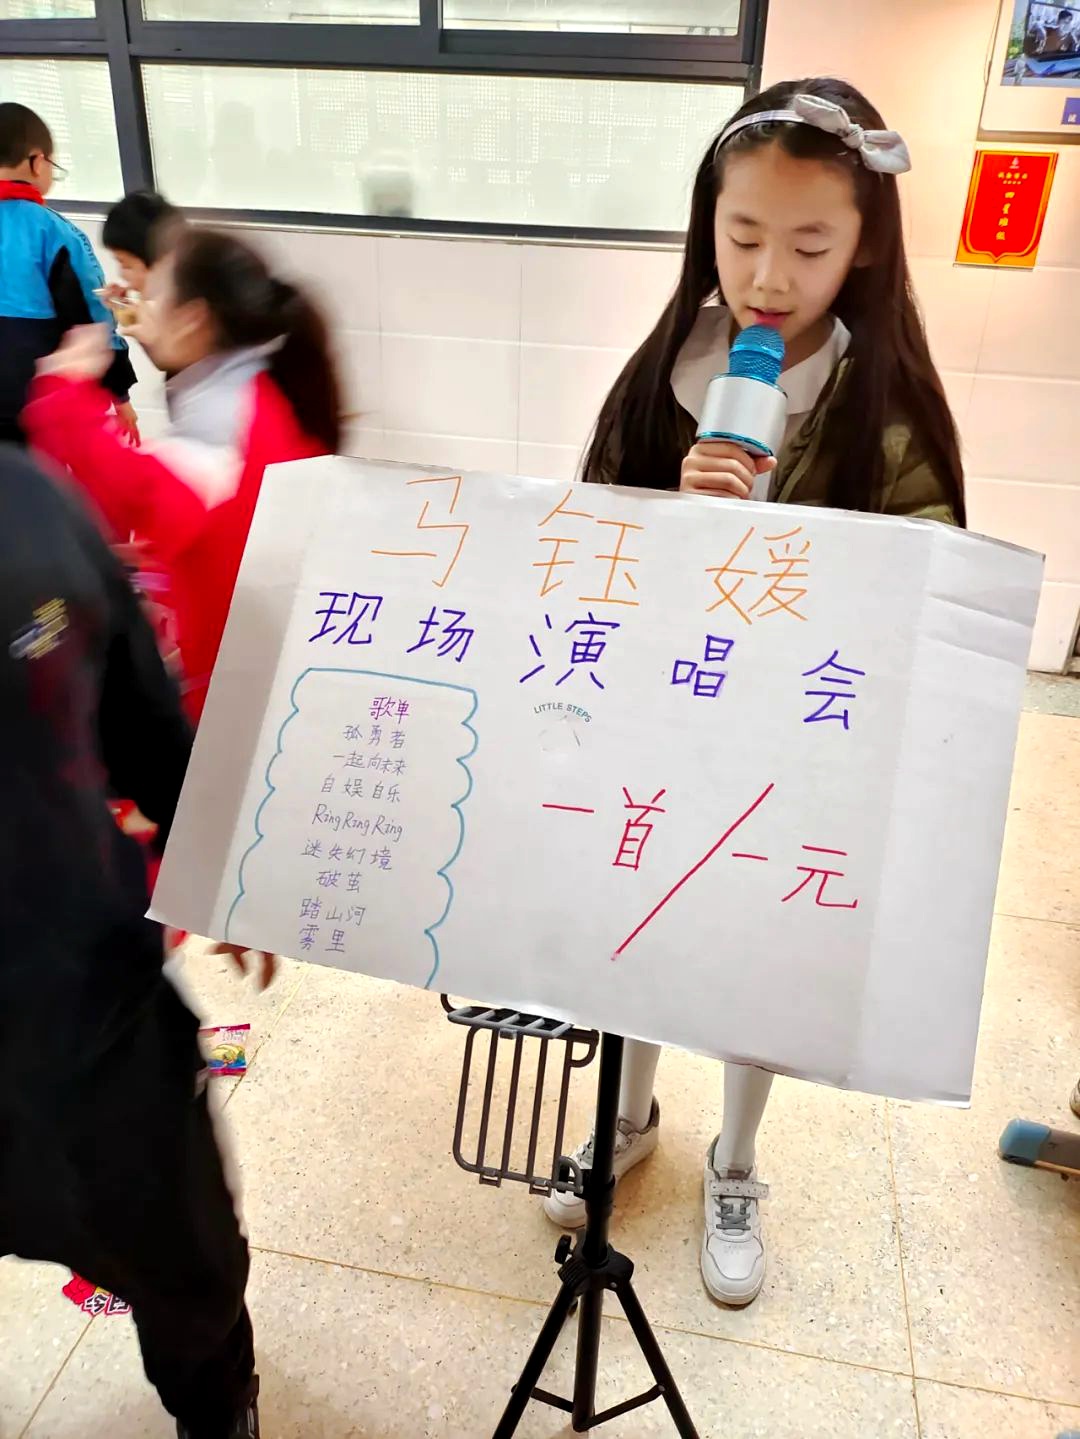 马钰媛
现场演唱会
歌单
孤勇者
一起向未来
自娱自乐
Ring Ring Ring
迷失幻境
破茧
踏山河
雾里
LITTLE STEPS
一首/一元
四星班级